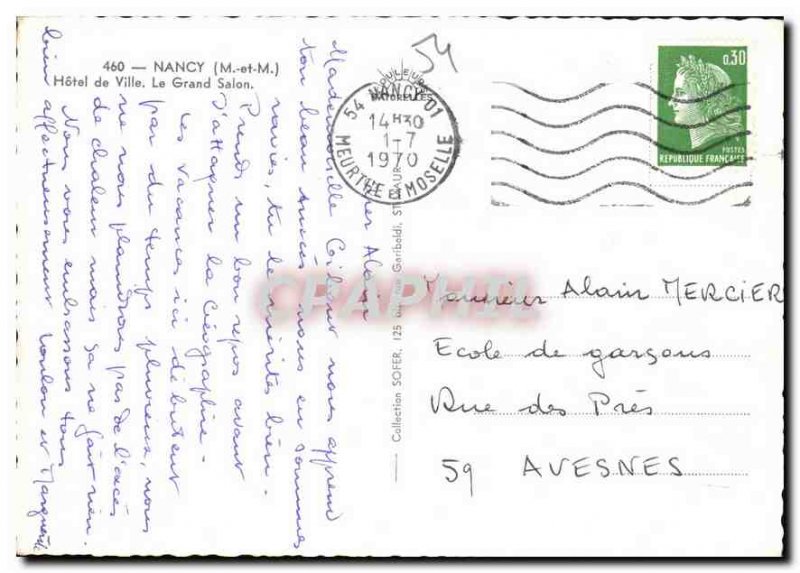 460 — NANCY (M.-et-M.)
Hôtel de Ville. Le Grand Salon.
54
COULEURS
NATURELLES
54 NANCY 01
14H30
1-7
1970
MEURTHE ET MOSELLE
0,30
POSTES
REPUBLIQUE FRANÇAISE
Collection SOFER, 125 Garibaldi, ST-MAUR
Cher Alain
Mademoiselle nous apprend
ton beau succès, nous en sommes
ravies, tu le mérites bien.
Prends un bon repos avant
d'attaquer la Géographie.
Les vacances ici débutent
par du temps pluvieux, nous
ne nous plaindrons pas de l'excès
de chaleur mais ça ne fait rien.
Nous vous embrassons tous
bien affectueusement et Marguerite
Monsieur Alain MERCIER
Ecole de garçons
Rue des Prés
59 AVESNES
CPAPHIL